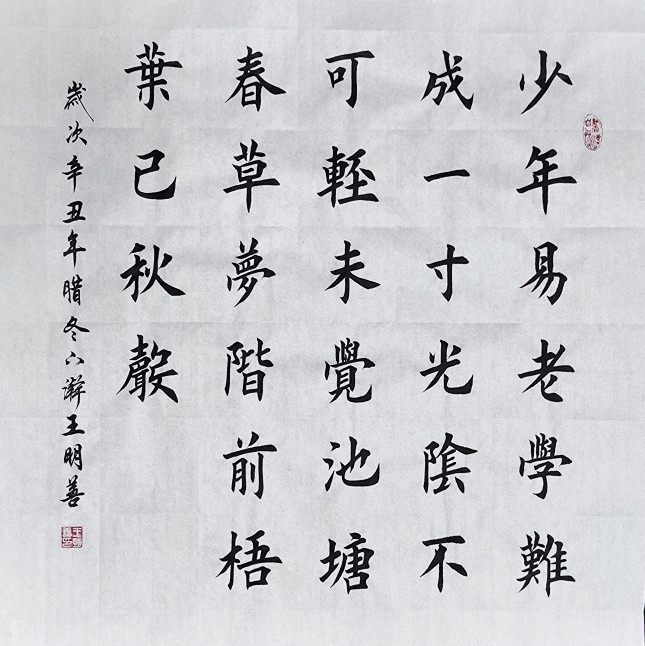 少年易老學難
成一寸光陰不
可輕未覺池塘
春草夢階前梧
葉已秋聲
歲次辛丑年腊冬六游王明善